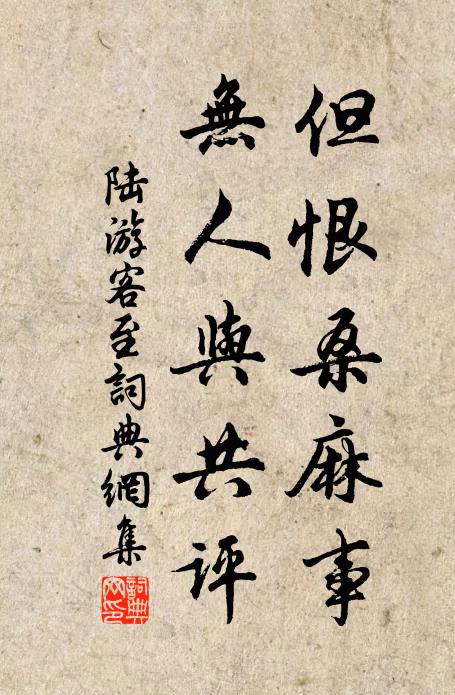 但恨桑麻事
無人與共評
陸游客至詞典網集
詞典網印